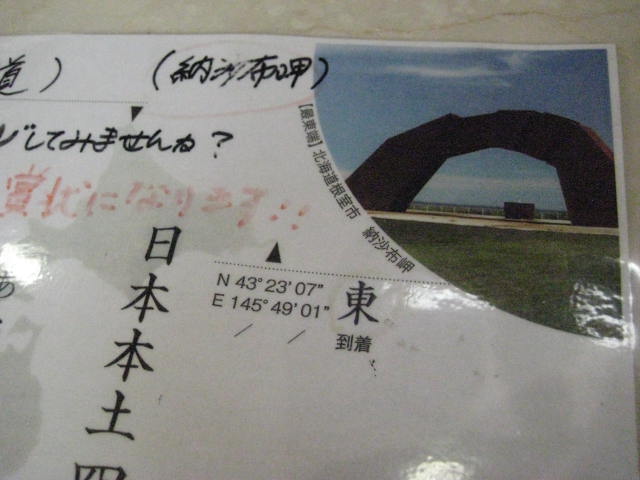 道) (納沙布岬)
ジしてみませんか?
になります!!
【最東端】北海道根室市 納沙布岬
N 43°23'07"
E 145°49'01"
/ /
東
到着
日本本土四